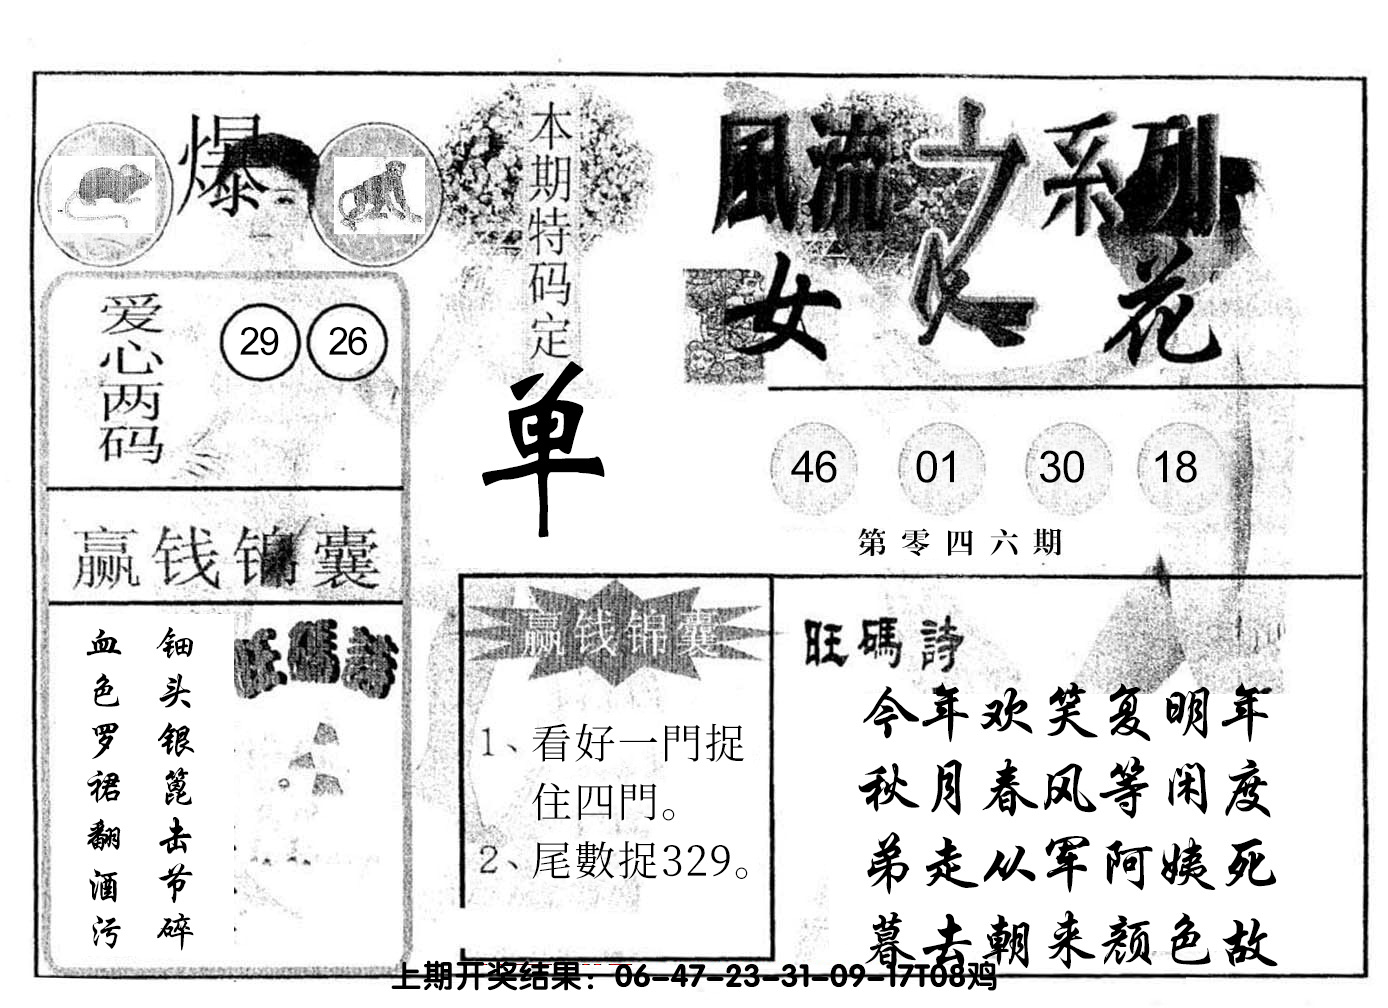 爆
爱心两码
29 26
赢钱锦囊
钿头银篦击节碎
血色罗裙翻酒污
旺碼詩
本期特码定
单
風流之系列
女人花
46 01 30 18
第零四六期
赢钱锦囊
1、看好一門捉
住四門。
2、尾數捉329。
旺碼詩
今年欢笑复明年
秋月春风等闲度
弟走从军阿姨死
暮去朝来颜色故
上期开奖结果：06-47-23-31-09-17T08鸡